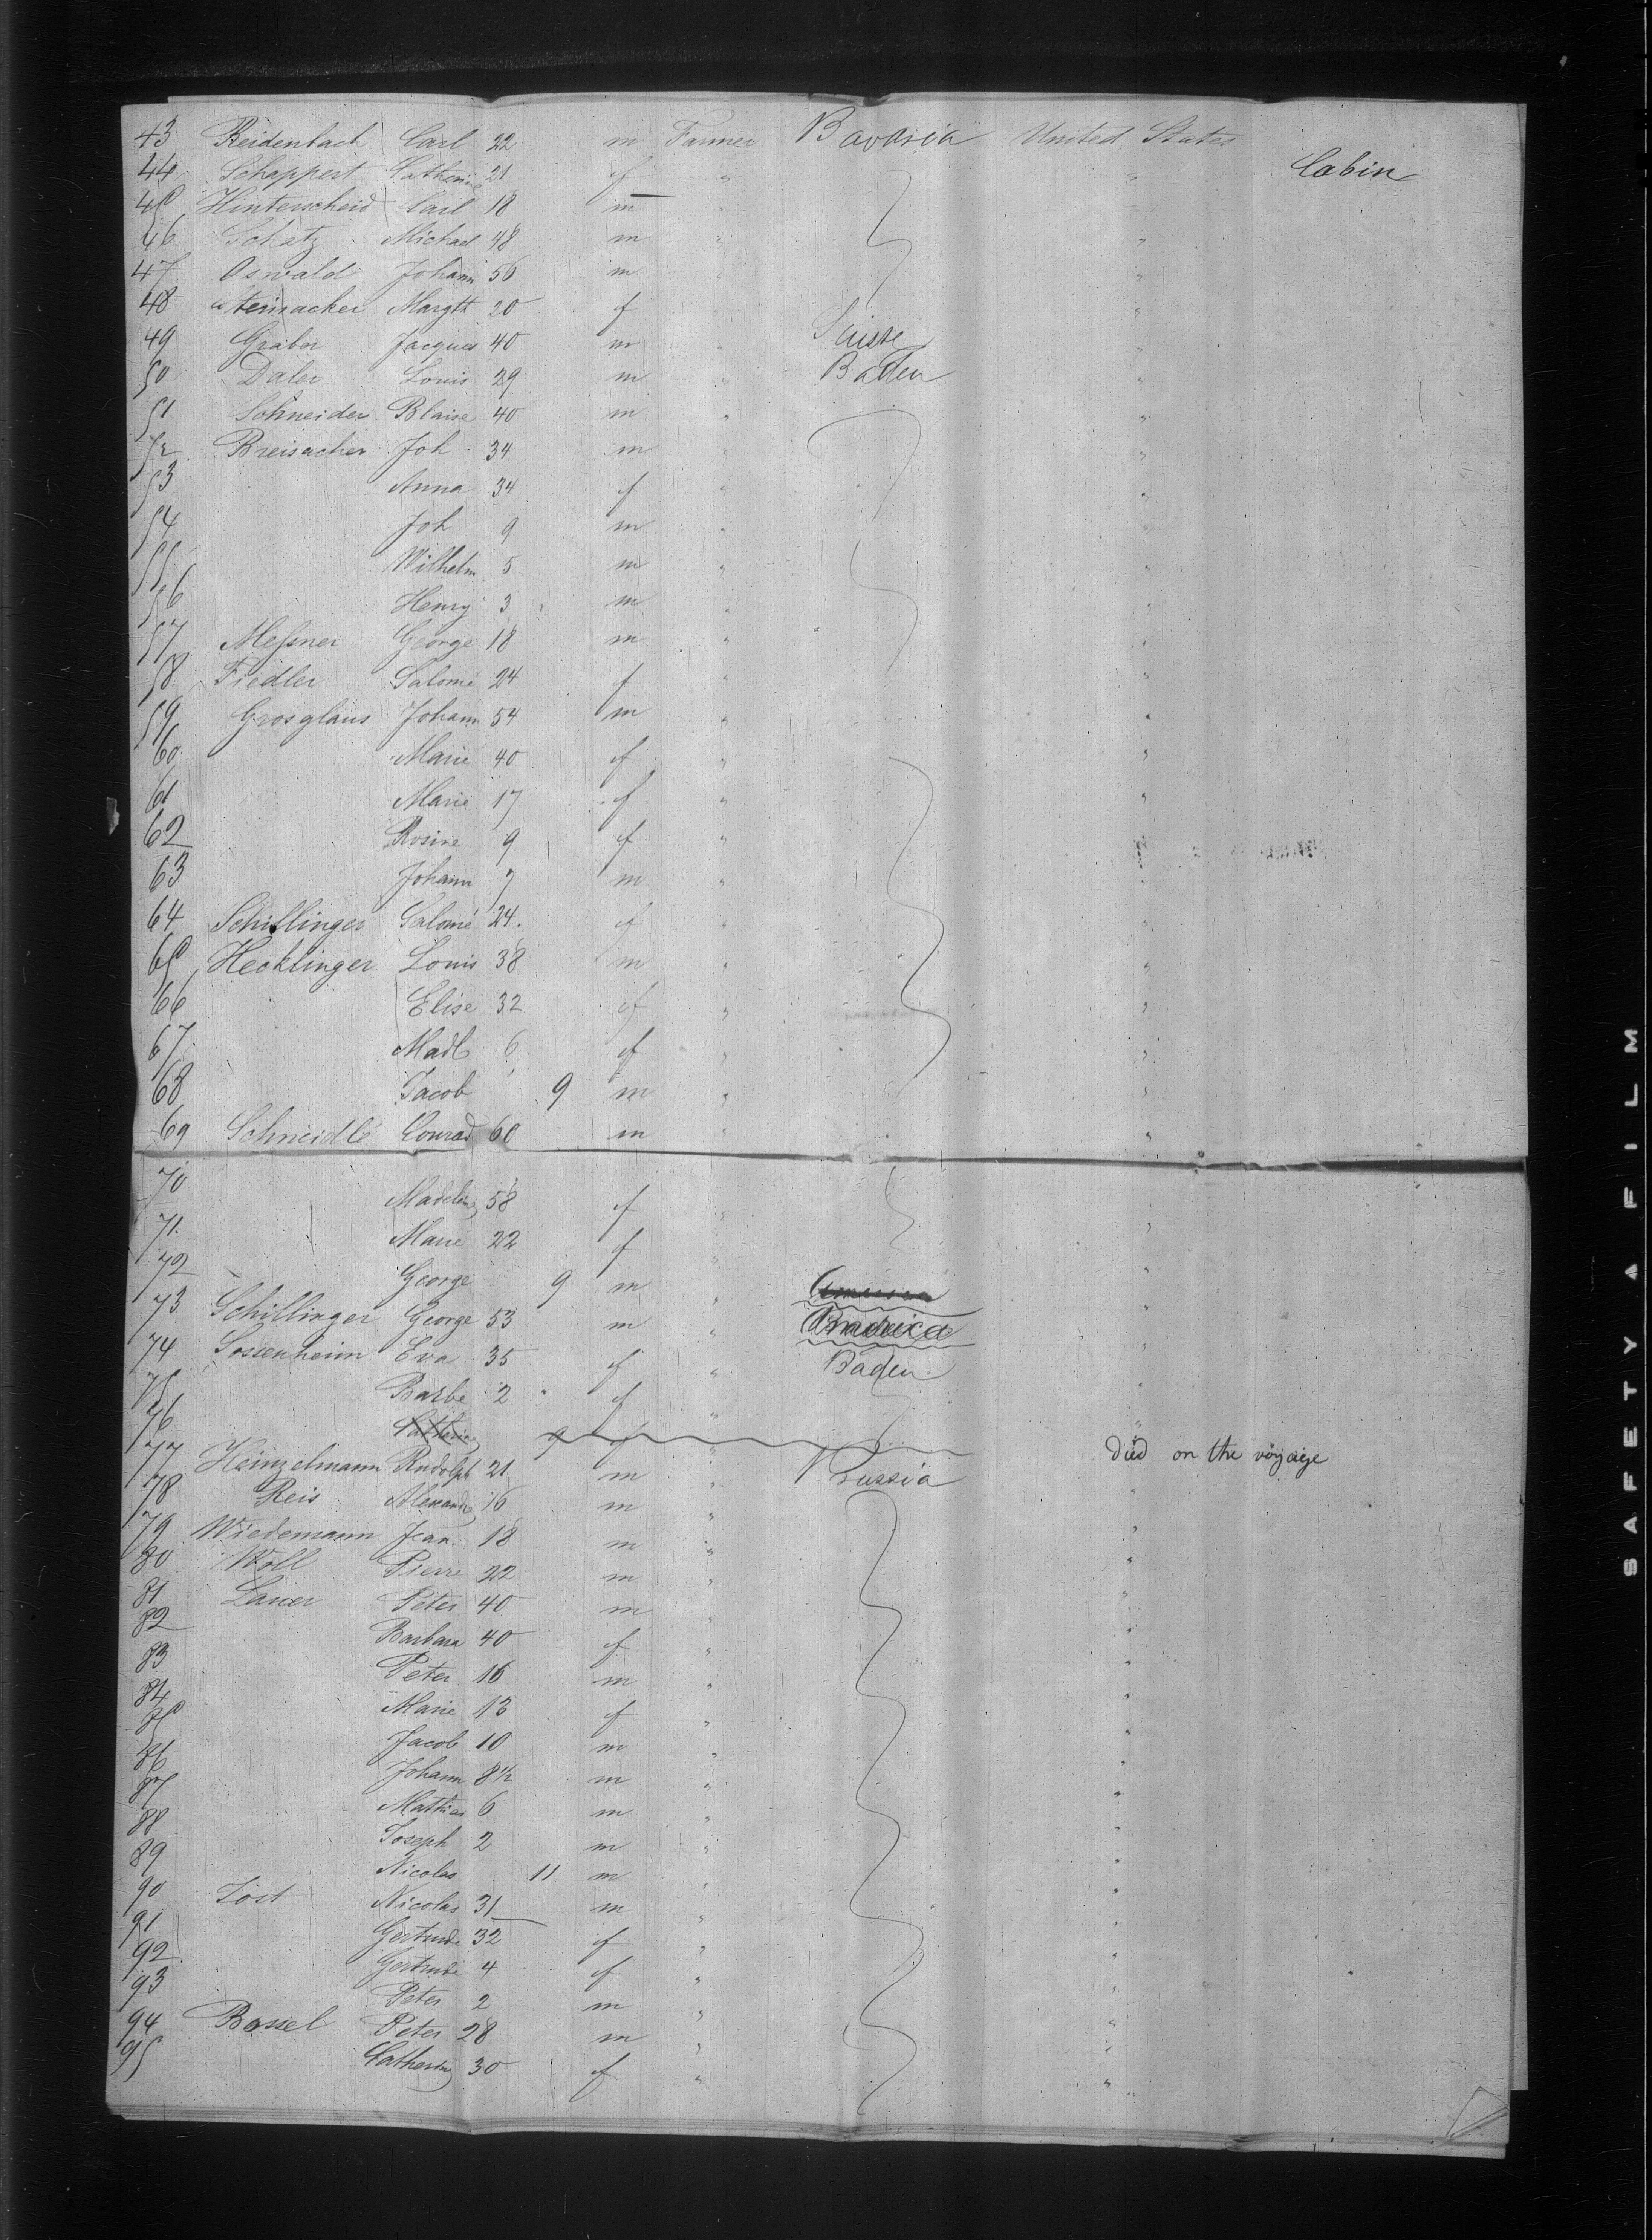 43 Reidenbach Carl 22 m Farmer Bavaria United States
44 Schappert Catherine 21 f " " Cabin
45 Hinterscheid Carl 18 m "
46 Schatz Michael 48 m " "
47 Oswald Johann 56 m " "
48 Steinacker Margtt 20 f "
49 Graber Jacques 40 m " Suisse "
50 Daler Louis 29 m " Baden "
51 Schneider Blaise 40 m " "
52 Breisacher Joh 34 m " "
53 Anna 34 f " "
54 Joh 9 m " "
55 Wilhelm 5 m " "
56 Henry 3 m " "
57 Meßner George 18 m " "
58 Fiedler Salomé 24 f " "
59 Grosglaus Johann 54 m " "
60 Marie 40 f " "
61 Marie 17 f " "
62 Rosine 9 f " "
63 Johann 7 m " "
64 Schillinger Salomé 24. f " "
65 Hecklinger Louis 38 m " "
66 Elise 32 f " "
67 Madl 6 f " "
68 Jacob 9 m " "
69 Schneidlé Conrad 60 m " "
70 Madelein 58 f " "
71 Marie 22 f " "
72 George 9 m "
73 Schillinger George 53 m " "
74 Sossenheim Eva 35 f " Baden "
75 Barbe 2 " f " "
76 Catherine 9 f " Died on the voyage
77 Heinzelmann Rudolph 21 m " Prussia
78 Reis Alexandre 16 m " "
79 Wiedemann Jean 18 m " "
80 Woll Pierre 22 m " "
81 Lauer Peter 40 m " "
82 Barbara 40 f " "
83 Peter 16 m " "
84 Marie 13 f " "
85 Jacob 10 m " "
86 Johann 8½ m " "
87 Mathias 6 m " "
88 Joseph 2 m " "
89 Nicolas 11 m " "
90 Jost Nicolas 31 m " "
91 Gertrude 32 f " "
92 Gertrude 4 f " "
93 Peter 2 m " "
94 Bassel Peter 28 m " "
95 Catherine 30 f " "
SAFETY A FILM